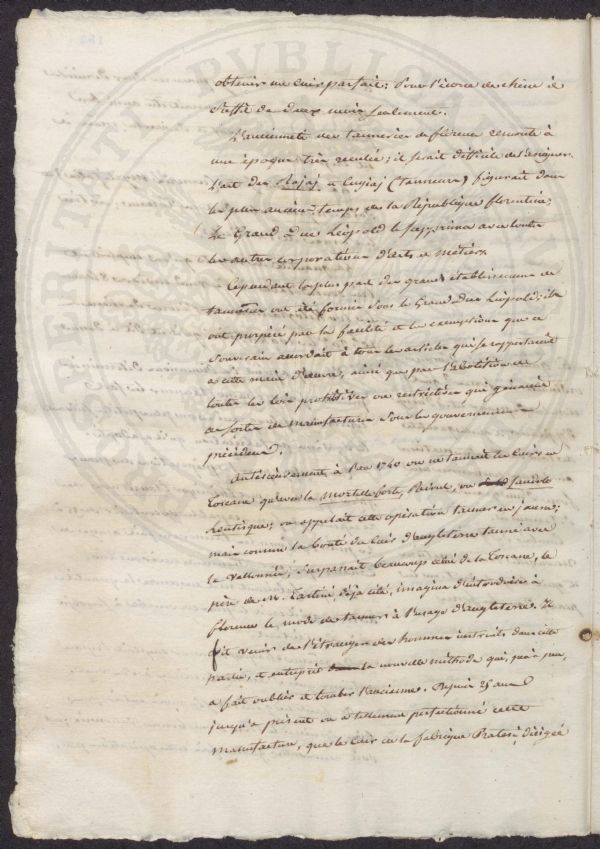 obtenir un cuir parfait; Pour l'écorce de chêne il
suffit de deux mois seulement.
L'ancienneté des tanneries de florence remonte à
une époque très reculée; il serait difficile de l'assigner.
L'art des Cojaj e Cugiaj (tanneurs) figurait dans
les plus anciens temps de la République florentine;
Le Grand Duc Léopold le supprima avec toutes
les autres corporations d'arts et métiers.
Cependant la plus part des grands établissemens de
tanneries ont été formés sous le Grand duc Léopold; ils
ont prospéré par la facilité et les exemptions que ce
Souverain accordait à tous les articles qui se rapportaient
à cette main d'œuvre, ainsi que par l'abolition de
toutes les lois prohibitives ou restrictives qui gênaient
la sortie des manufactures sous les gouvernemens
précédens.
Antérieurement à l'an 1740 on ne tannait les cuirs en
Toscane qu'avec la Mortella forte, ou
Lentisque; on appelait cette opération tanner en jaune;
mais comme la bonté des cuirs d'angleterre tannés avec
la vallonnée, surpassait beaucoup celui de la Toscane, le
père de Mr. déjà cité, imagina d'introduire à
florence le mode de tanner à l'usage d'angleterre. Il
fit venir de l'étranger des hommes instruits dans cette
partie, et entreprit la nouvelle méthode qui, peu à peu,
a fait oublier et tomber l'ancienne. Depuis 25 ans
jusqu'à présent on a tellement perfectionné cette
manufacture, que les cuirs de la fabrique dirigée